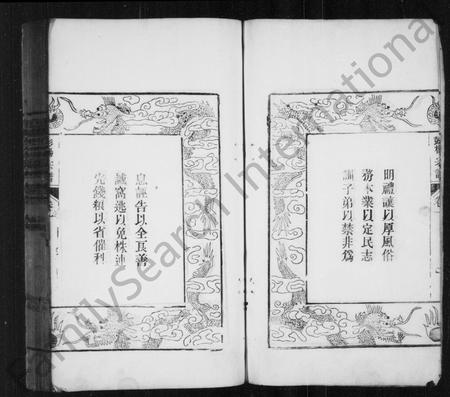 明禮讓以厚風俗
務本業以定民志
訓子弟以禁非為
息誣告以全良善
誡窩逃以免株連
完錢糧以省催科
FamilySearch International